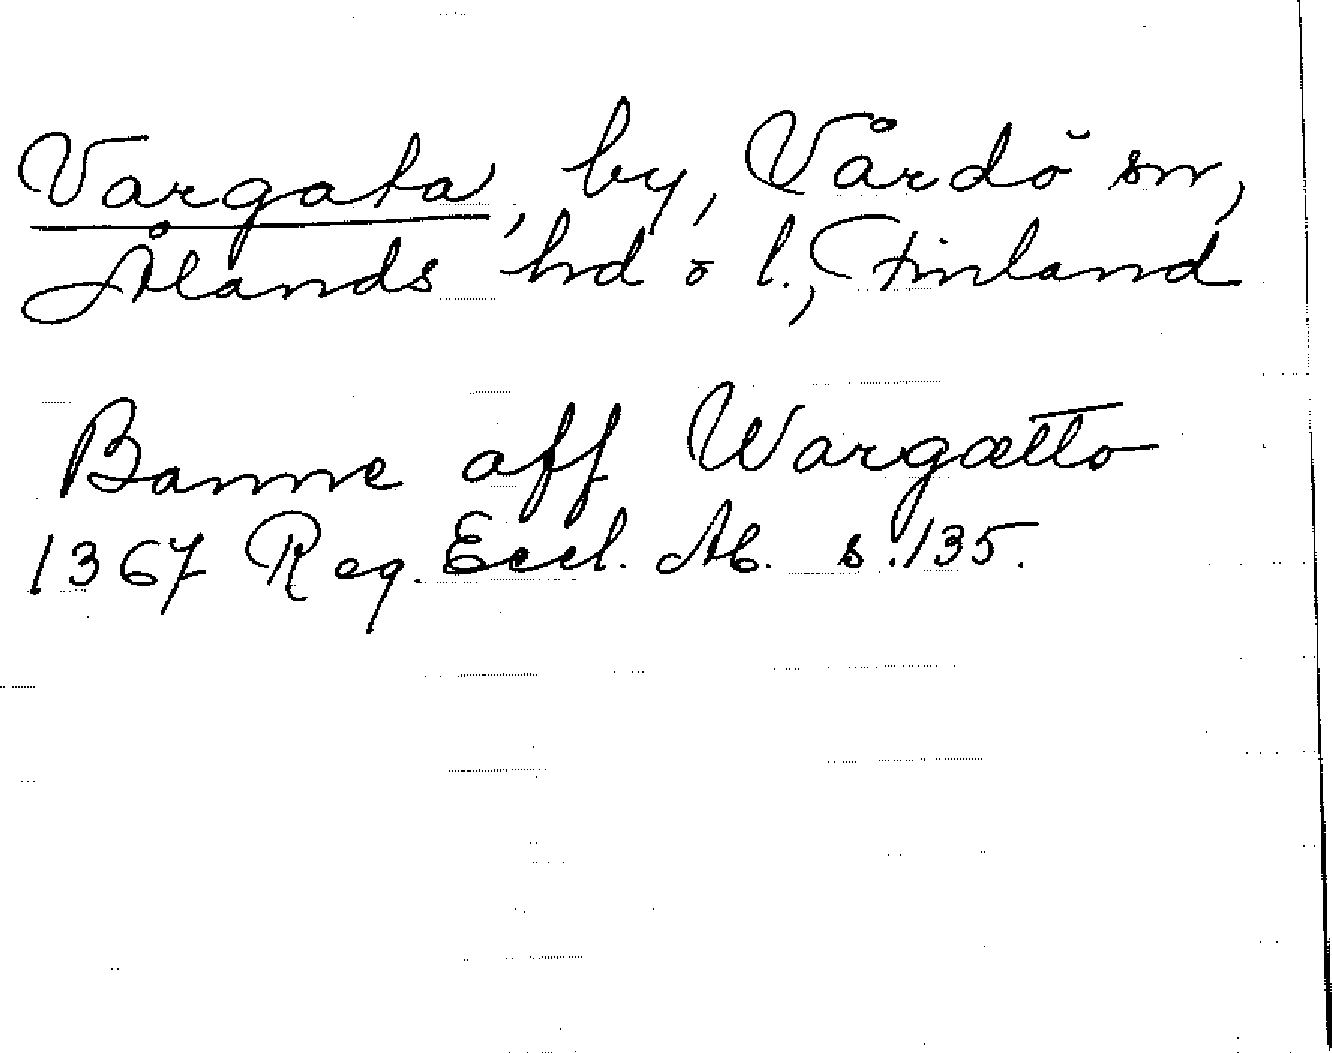 Vargata, by, Vårdö sn,
Ålands hd o l., Finland
Banne aff Wargætto
1367 Reg. Eccl. Ab. s. 135.